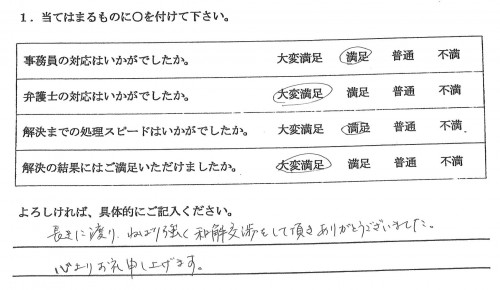 １．当てはまるものに○を付けて下さい。
事務員の対応はいかがでしたか。 大変満足 満足 普通 不満
弁護士の対応はいかがでしたか。 大変満足 満足 普通 不満
解決までの処理スピードはいかがでしたか。 大変満足 満足 普通 不満.
解決の結果にはご満足いただけましたか。 大変満足 満足 普通 不満
よろしければ、具体的にご記入ください。
長きに渡り、ねばり強く和解交渉をして頂きありがとうございました。
心よりお礼申し上げます。